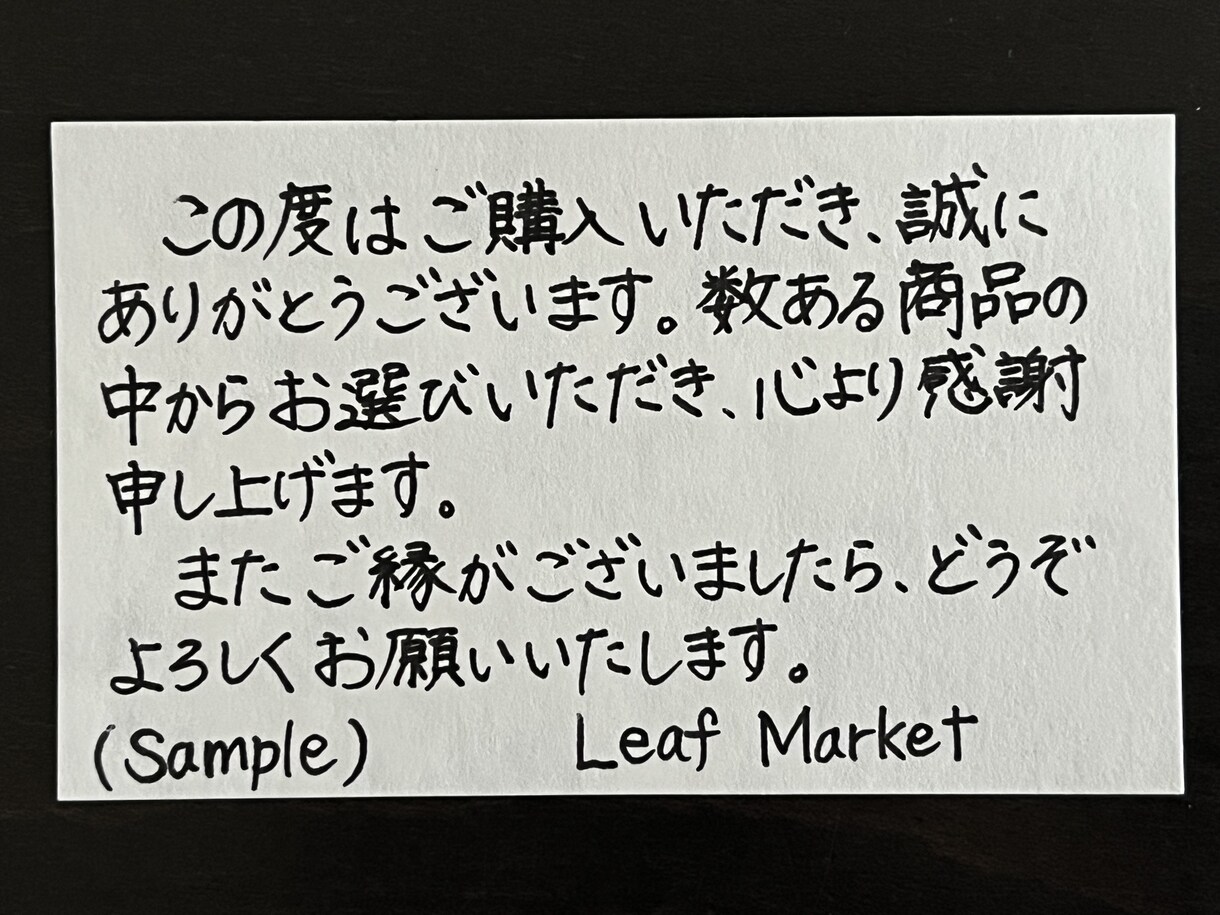 この度はご購入いただき、誠に
ありがとうございます。数ある商品の
中からお選びいただき、心より感謝
申し上げます。
またご縁がございましたら、どうぞ
よろしくお願いいたします。
(Sample) Leaf Market